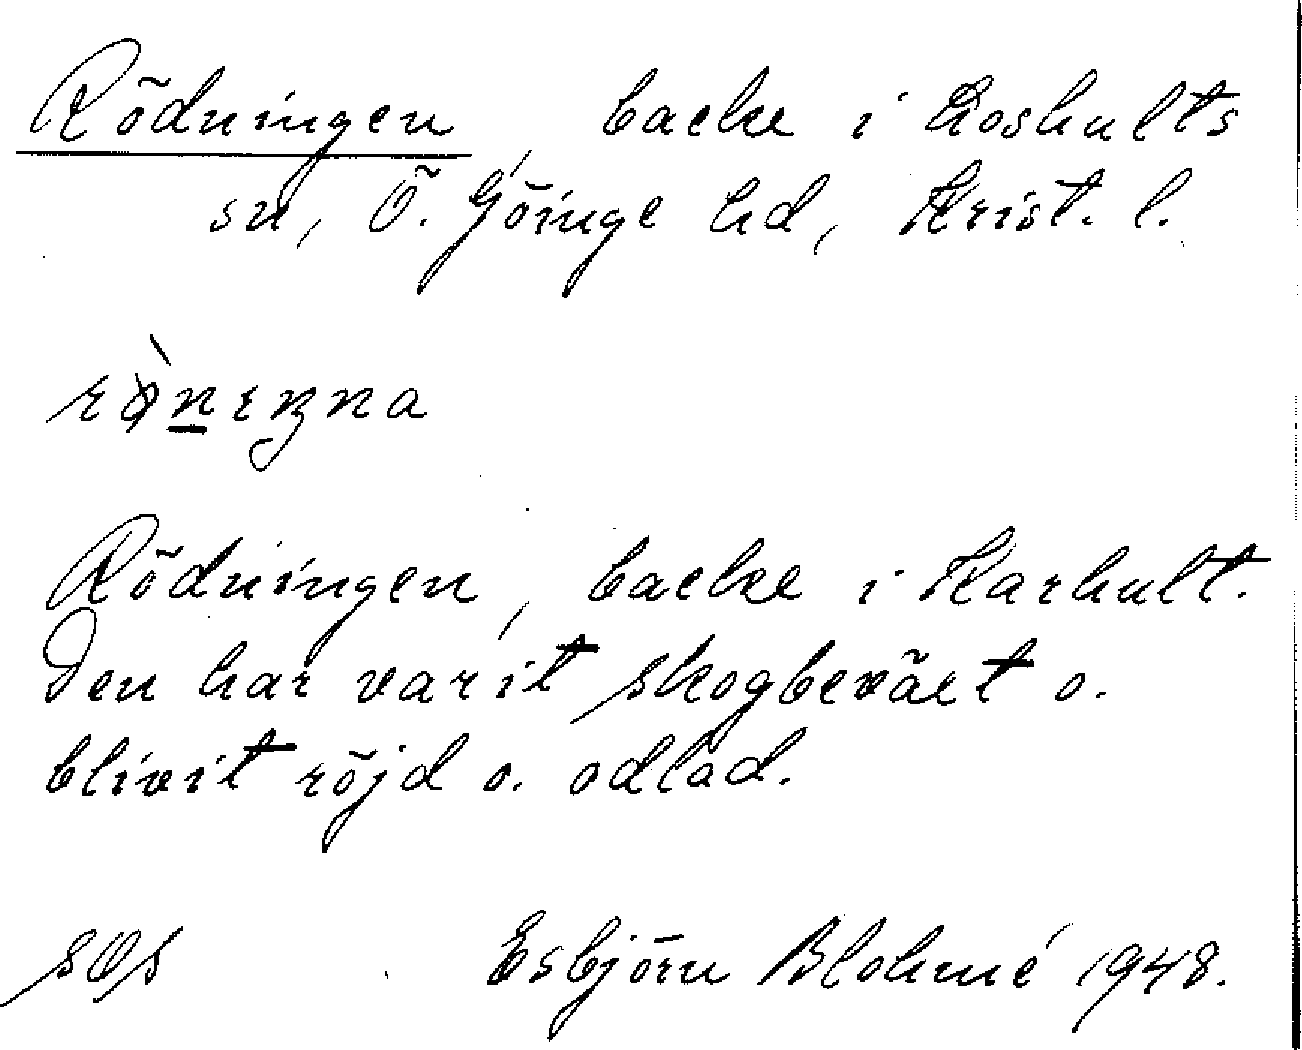 Rödningen, backe i Loshults
sn, Ö. Göinge hd, Krist. l.
Rödningen, backe i Karhult.
Den har varit skogbeväxt o.
blivit röjd o. odlad.
sOs Esbjörn Blohmé 1948.